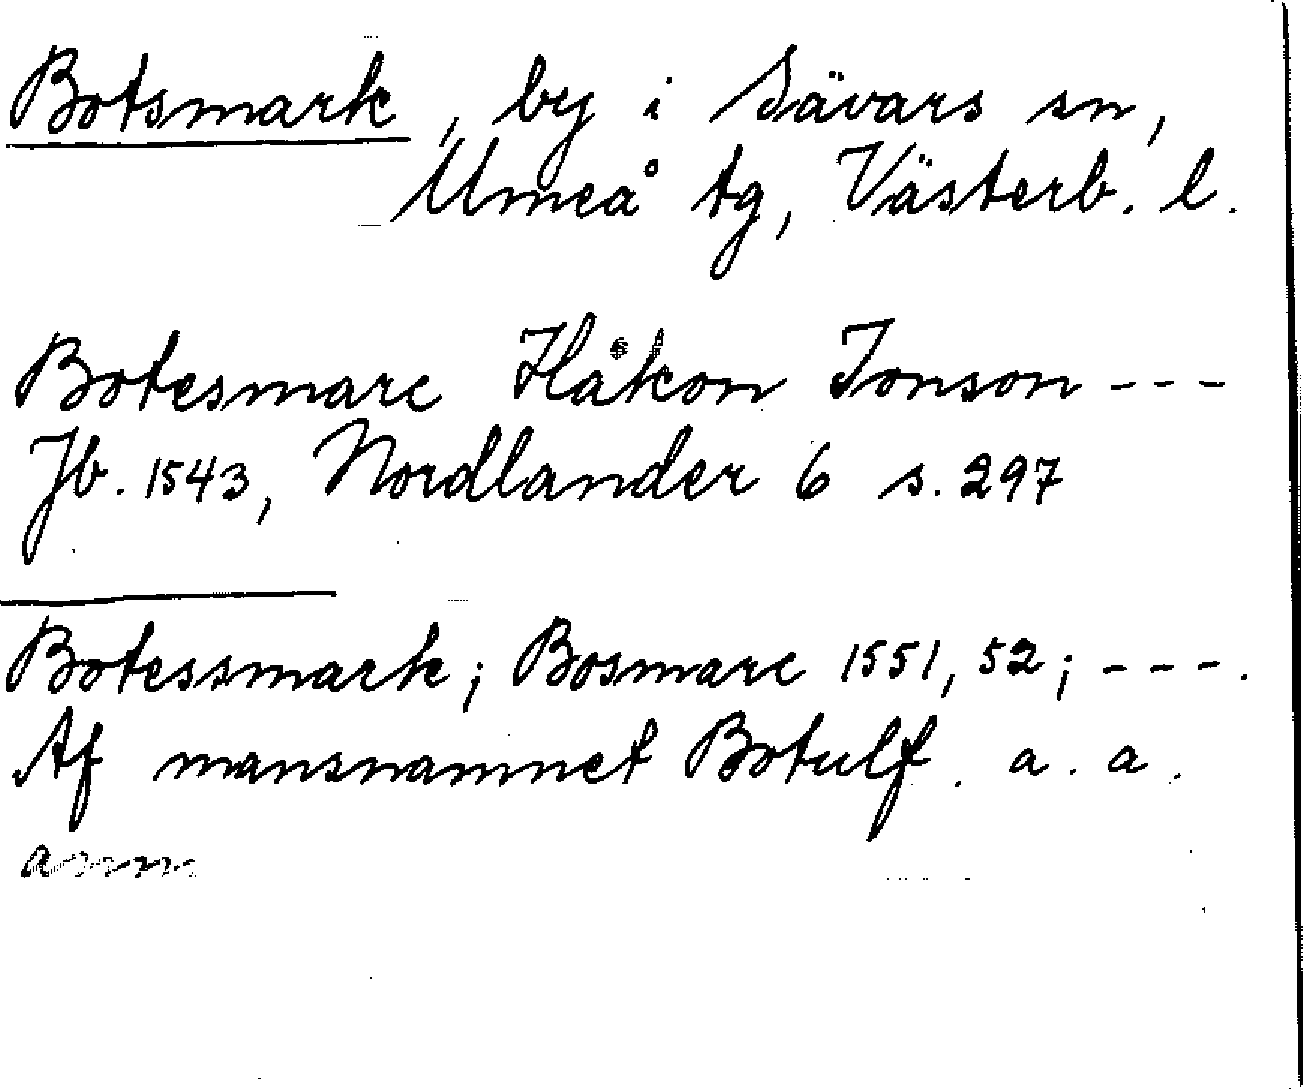 Botsmark, by i Sävars sn,
Umeå tg, Västerb. l.
Botesmarc Håkon Jonson ---
Jb. 1543, Nordlander 6 s. 297
Botessmark; Bosmarc 1551, 52; ---.
Af mansnamnet Botulf. a. a.
anm